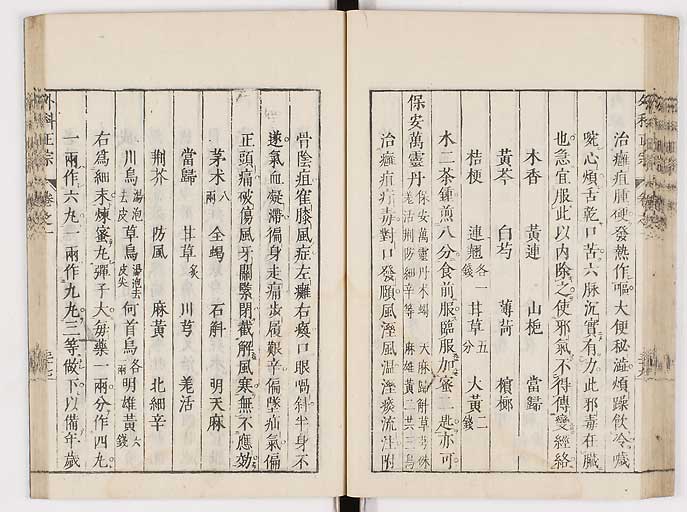 治癰疽腫硬發熱作嘔大便秘澁煩躁飲冷噦
啘心煩舌乾口苦六脉沉實有力此邪毒在臟
也急宜服此以內除之使邪氣不得傳變經絡
木香 黃連 山梔 當歸
黃芩 白芍 薄荷 檳榔
桔梗 連翹各一錢 甘草五分 大黃二錢
水二茶鍾煎八分食前服臨服加蜜二匙亦可
保安萬靈丹 保安萬靈丹朮蝎 天麻歸解草芎 羌活荆防細辛等 麻雄黃二共三烏
治癰疽疔毒對口發頤風溼風温溼痰流注附
骨陰疽鶴膝風症左癱右瘓口眼喎斜半身不
遂氣血凝滯徧身走痛步履艱辛偏墜疝氣偏
正頭痛破傷風牙關緊閉截解風寒無不應効
茅朮八兩 全蝎 石斛 明天麻
當歸 甘草炙 川芎 羌活
荆芥 防風 麻黃 北細辛
川烏湯泡去皮 草烏湯泡去皮尖 何首烏各一兩 明雄黃六錢
右爲細末煉蜜丸彈子大毎藥一兩分作四丸
一兩作六丸一兩作九丸三等做下以備年歲
外科正宗 卷之一